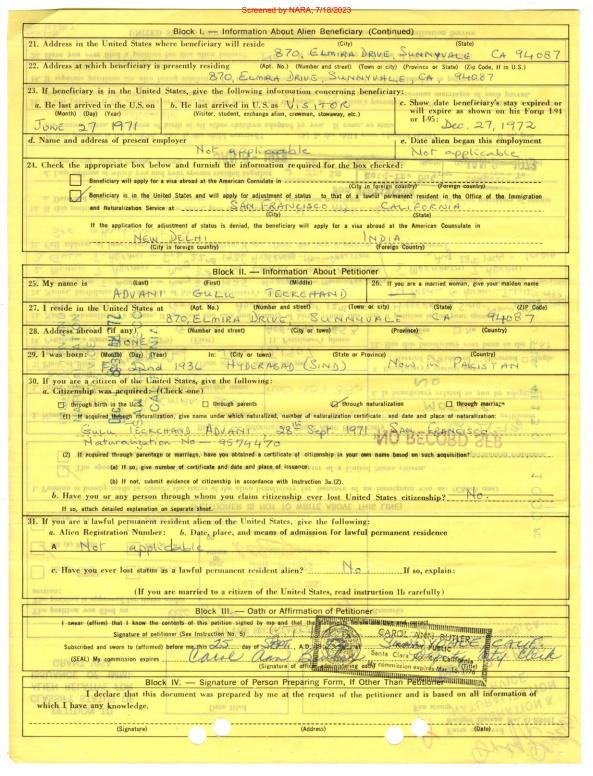 Screened by NARA, 7/18/2023
Block I. — Information About Alien Beneficiary (Continued)
21. Address in the United States where beneficiary will reside (City) (State)
870, ELMIRA DRIVE, SUNNYVALE CA 94087
22. Address at which beneficiary is presently residing (Apt. No.) (Number and street) (Town or city) (Province or State) (Zip Code, if in U.S.)
870, ELMIRA DRIVE, SUNNYVALE, CA 94087
23. If beneficiary is in the United States, give the following information concerning beneficiary:
a. He last arrived in the U.S. on (Month) (Day) (Year)
JUNE 27 1971
b. He last arrived in U.S. as VISITOR
(Visitor, student, exchange alien, crewman, stowaway, etc.)
c. Show date beneficiary's stay expired or will expire as shown on his Form I-94 or I-95:
Dec. 27, 1972
d. Name and address of present employer
Not applicable
e. Date alien began this employment
Not applicable
24. Check the appropriate box below and furnish the information required for the box checked:
Beneficiary will apply for a visa abroad at the American Consulate in
(City in foreign country) (Foreign country)
Beneficiary is in the United States and will apply for adjustment of status to that of a lawful permanent resident in the Office of the Immigration
and Naturalization Service at SAN FRANCISCO CALIFORNIA
(City) (State)
If the application for adjustment of status is denied, the beneficiary will apply for a visa abroad at the American Consulate in
NEW DELHI INDIA
(City in foreign country) (Foreign country)
Block II. — Information About Petitioner
25. My name is (Last) (First) (Middle)
ADVANI GULU TECKCHAND
26. If you are a married woman, give your maiden name
27. I reside in the United States at (Apt. No.) (Number and street) (Town or city) (State) (ZIP Code)
870, ELMIRA DRIVE, SUNNYVALE CA 94087
28. Address abroad (if any) (Number and street) (City or town) (Province) (Country)
NONE
29. I was born: (Month) (Day) (Year) In: (City or town) (State or Province) (Country)
22nd 1936 HYDERABAD (SIND) NOW IN PAKISTAN
30. If you are a citizen of the United States, give the following:
a. Citizenship was acquired: (Check one)
through birth in the U.S. through parents through naturalization through marriage
(1) If acquired through naturalization, give name under which naturalized, number of naturalization certificate and date and place of naturalization:
GULU TECKCHAND ADVANI 28th Sept 1971 SAN FRANCISCO
Naturalization No — 9574470
NO RECORD SFR
(2) If acquired through parentage or marriage, have you obtained a certificate of citizenship in your own name based on such acquisition?
(a) If so, give number of certificate and date and place of issuance:
(b) If not, submit evidence of citizenship in accordance with Instruction 3a.(2).
b. Have you or any person through whom you claim citizenship ever lost United States citizenship? No
If so, attach detailed explanation on separate sheet.
31. If you are a lawful permanent resident alien of the United States, give the following:
a. Alien Registration Number: b. Date, place, and means of admission for lawful permanent residence
A Not applicable
c. Have you ever lost status as a lawful permanent resident alien? No If so, explain:
(If you are married to a citizen of the United States, read instruction 1b carefully)
Block III. — Oath or Affirmation of Petitioner
I swear (affirm) that I know the contents of this petition signed by me and that the
Signature of petitioner (See Instruction No. 5)
Subscribed and sworn to (affirmed) before me this 25 day of SEPT. A.D.
(SEAL) My commission expires Carol Ann
CAROL ANN BUTLER
Santa Clara
My commission expires
City Clerk
Signature of officer
(Title)
Block IV. — Signature of Person Preparing Form, If Other Than Petitioner
I declare that this document was prepared by me at the request of the petitioner and is based on all information of
which I have any knowledge.
(Signature) (Address) (Date)